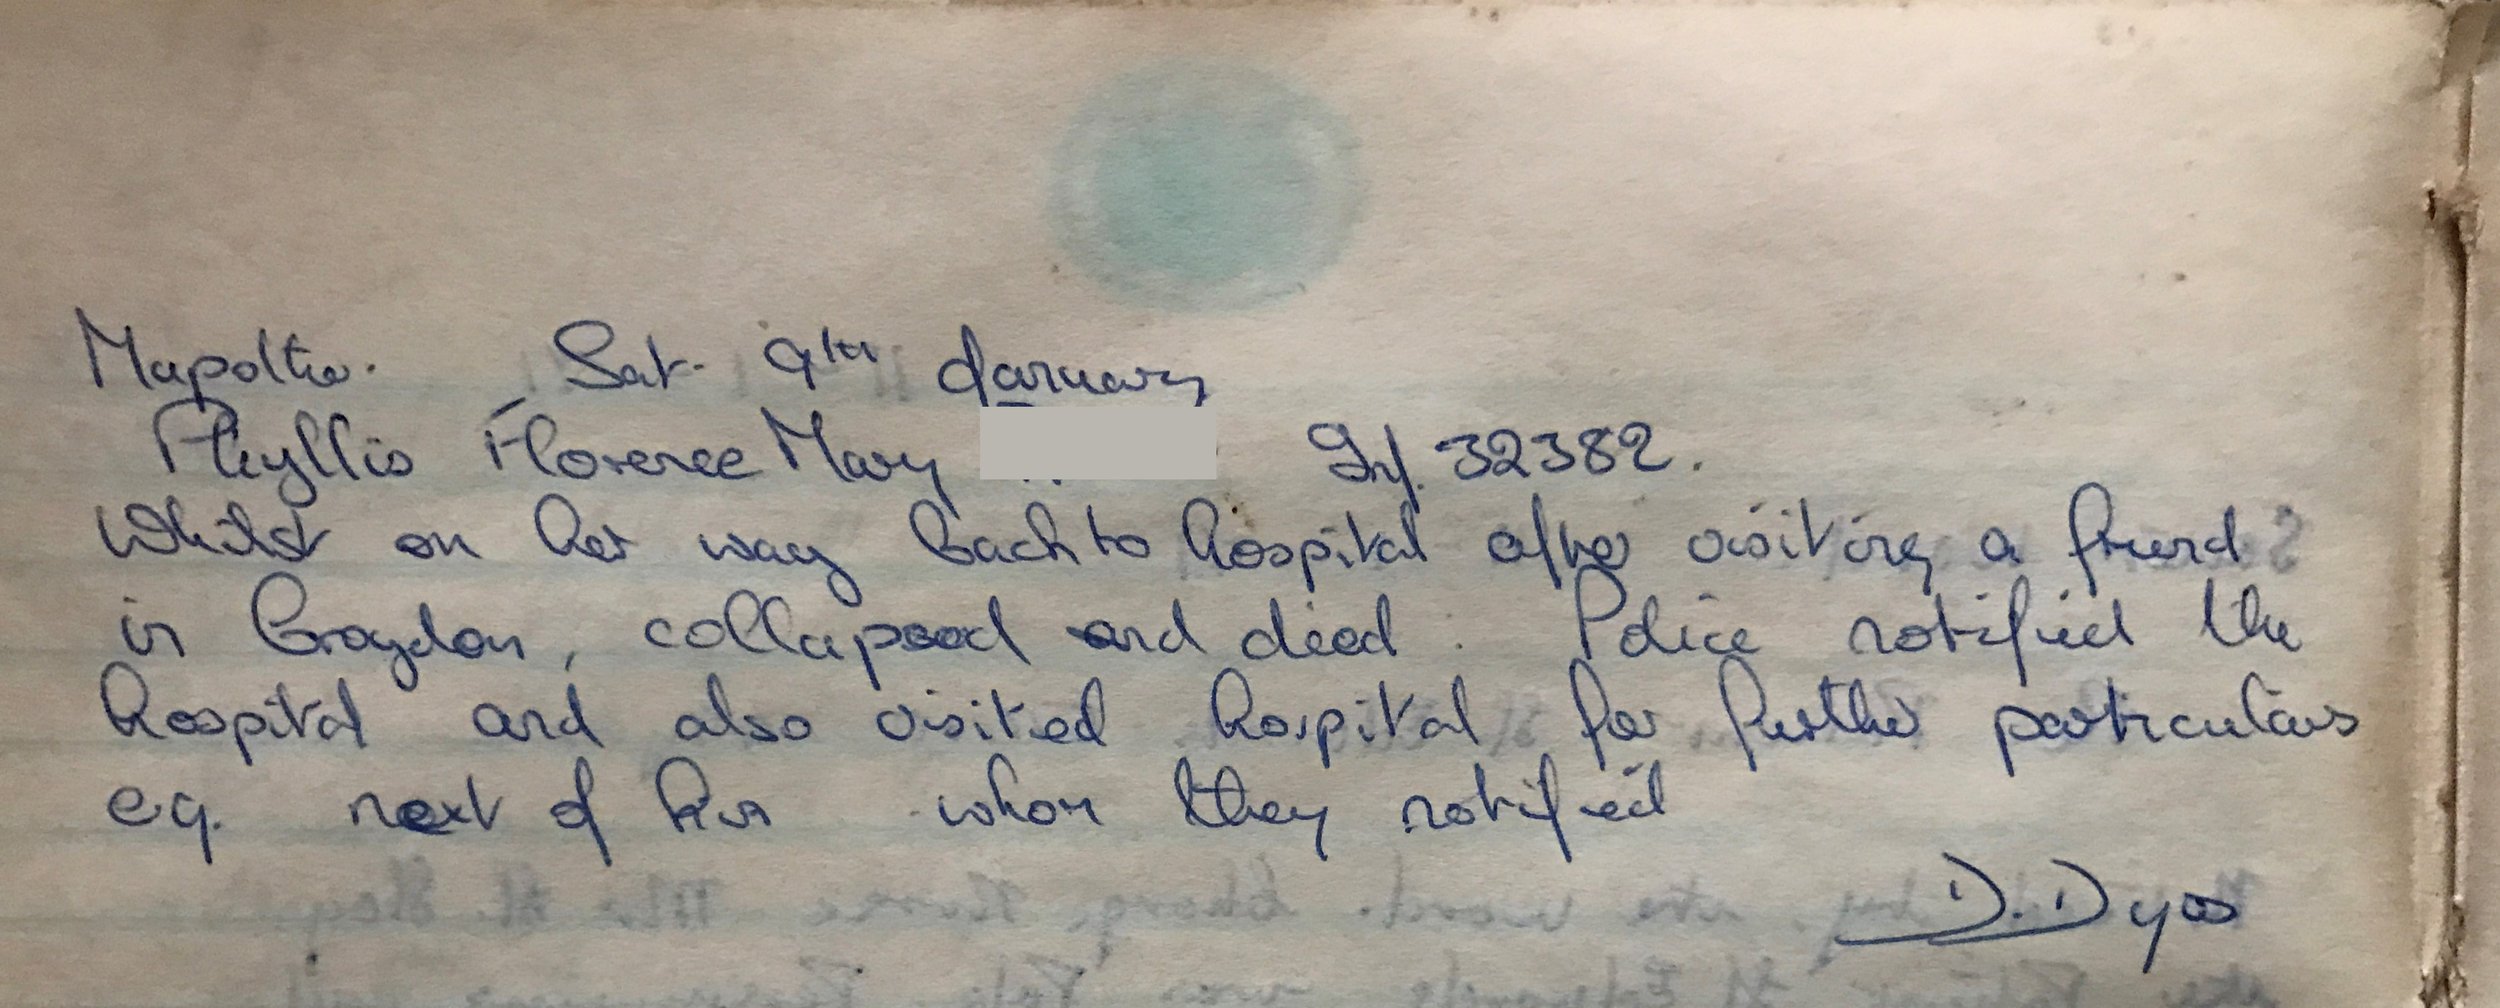 Mapother. Sat. 9th January
Phyllis Florence Mary 32382.
Whilst on her way back to hospital after visiting a friend
in Croydon, collapsed and died. Police notified the
hospital and also visited hospital for further particulars
eg. next of kin whom they notified
D. Dyos